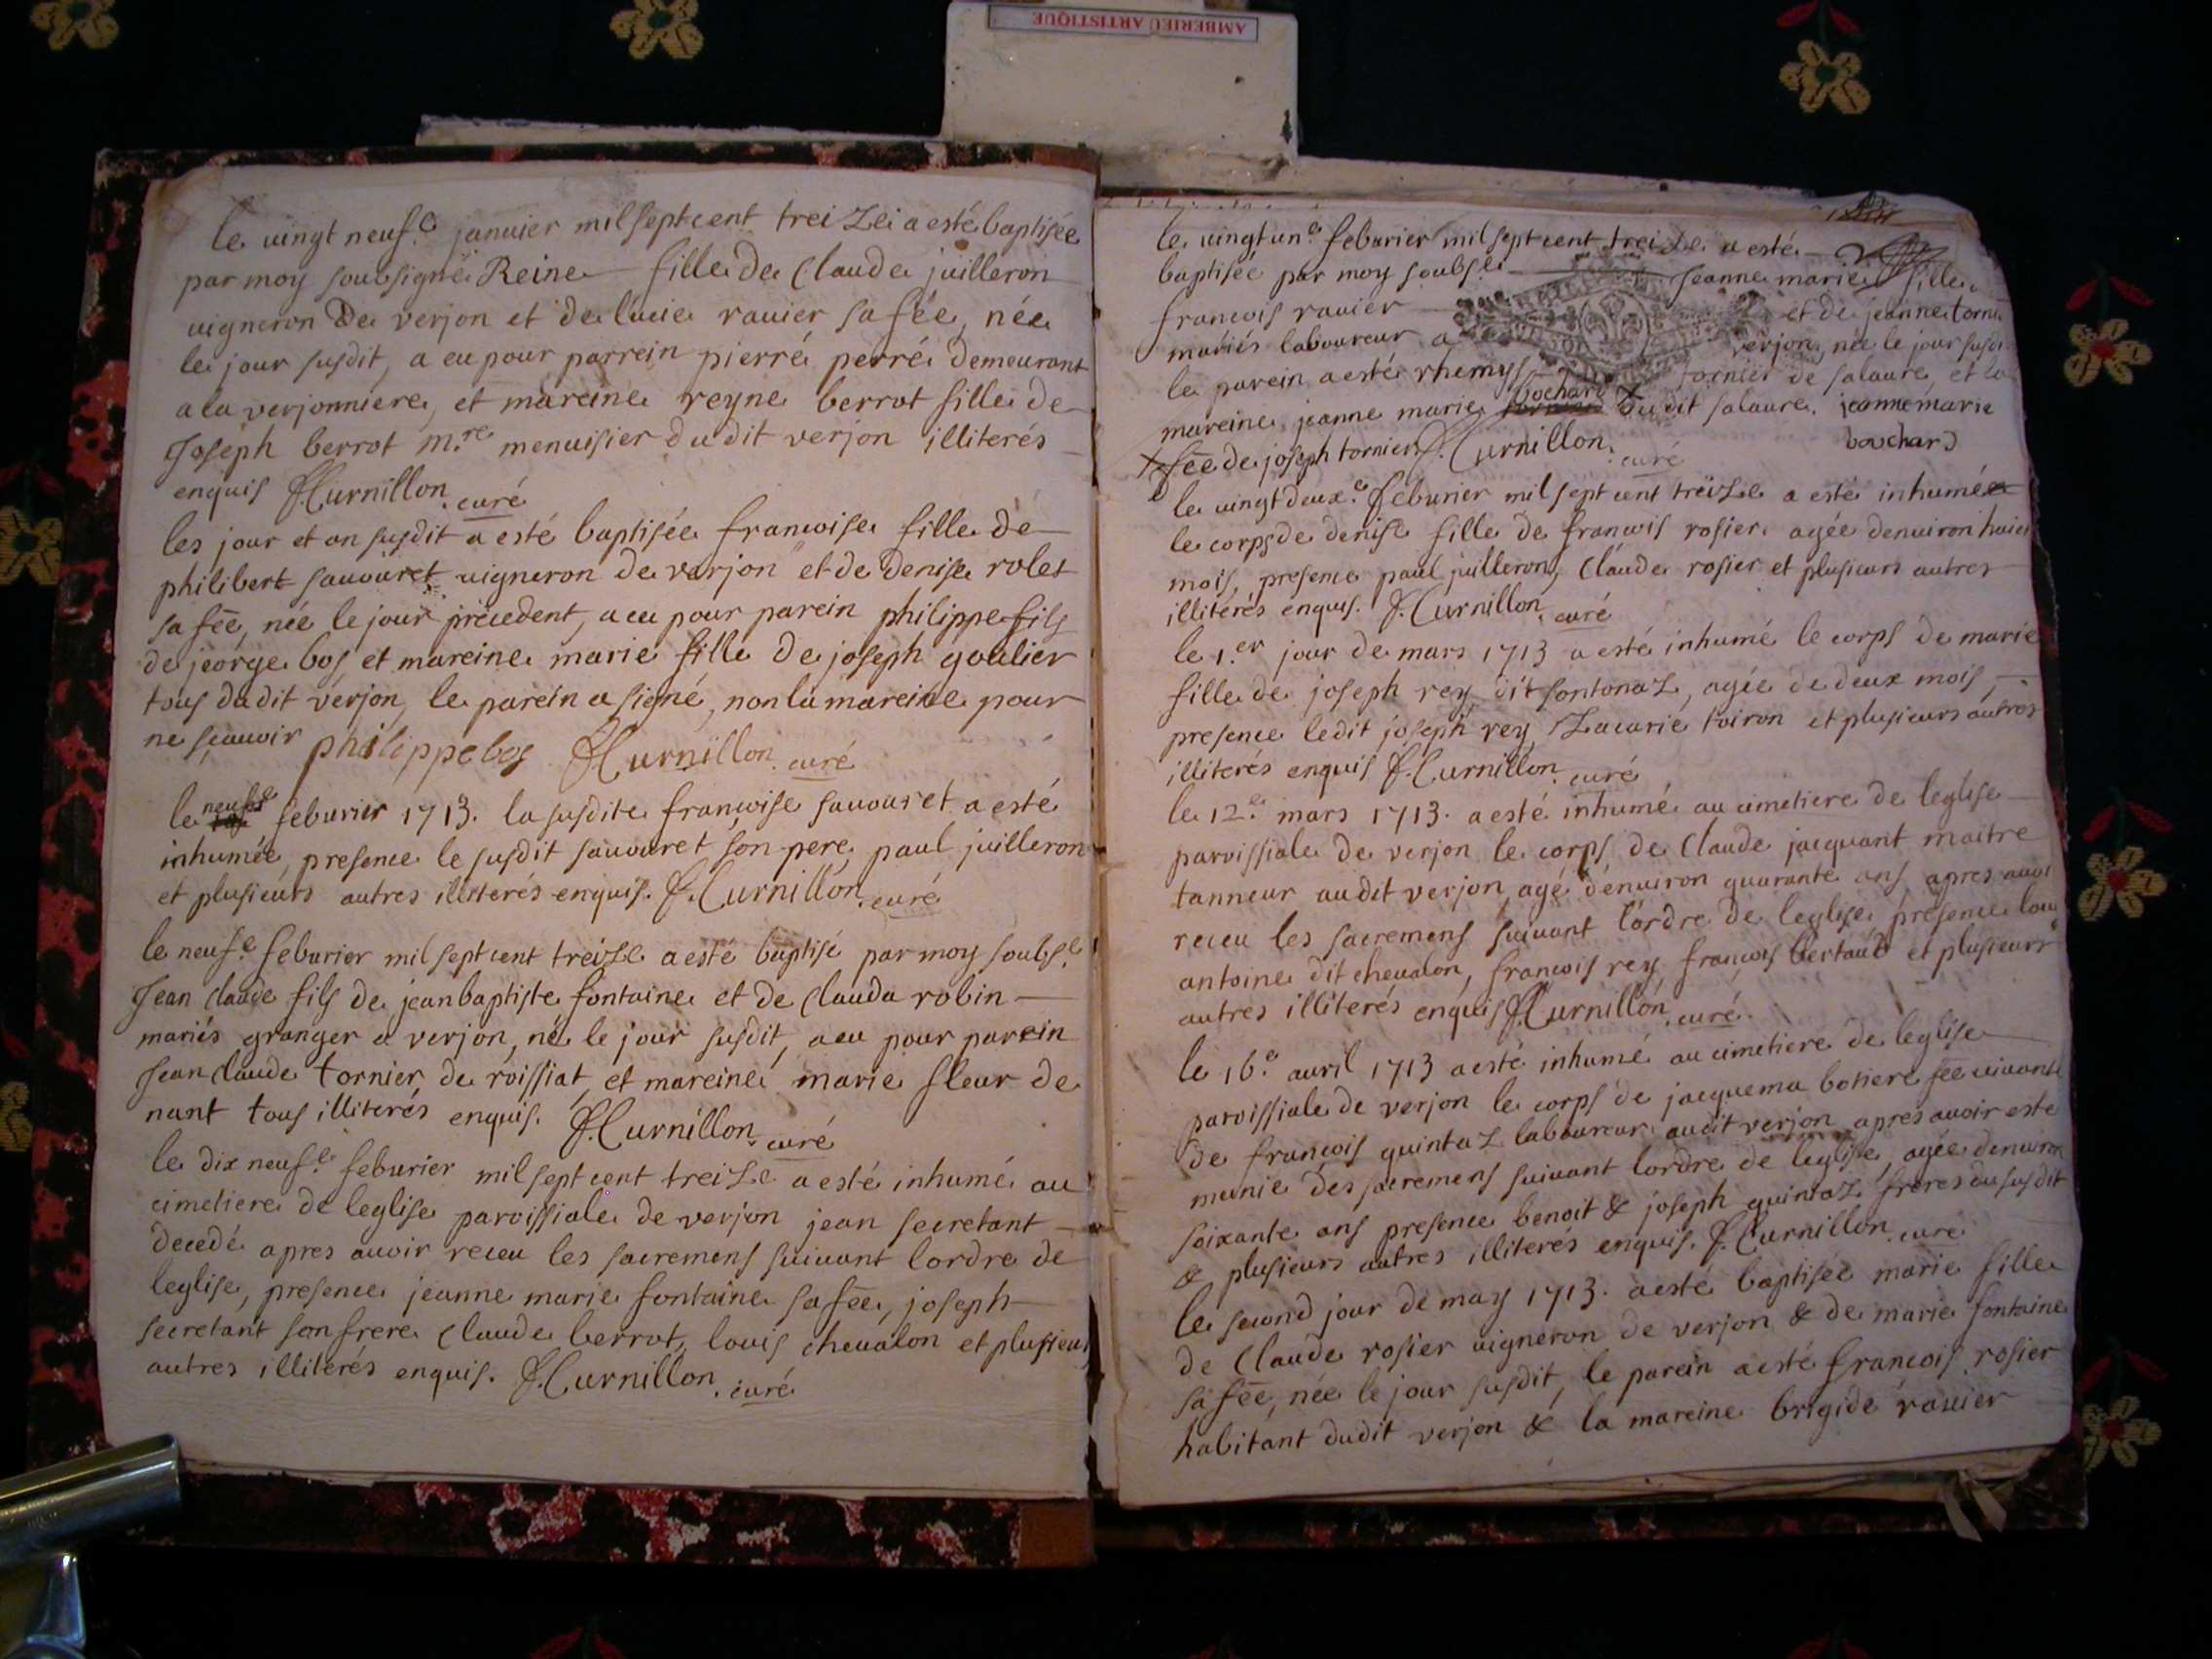 AMBERIEU ARTISTIQUE
le vingt neuf.e janvier mil sept cent treize a esté baptisée
par moy soubsigné Reine fille de Claude juilleron
vigneron de verjon et de lucie ravier sa fēe, née
le jour susdit, a eu pour parrein pierre perré demeurant
a la verjonniere, et mareine reyne berrot fille de
Joseph berrot m.re menuisier dudit verjon illiterés
enquis J. Curnillon. curé
les jour et an susdit a esté baptisée francoise fille de
philibert savouret vigneron de verjon et de denise rolet
sa fēe, née le jour precedent, a eu pour parein philippe fils
de jeorge bos et mareine marie fille de joseph goulier
tous dudit verjon, le parein a signé, non la mareine pour
ne scavoir philippe bos J. Curnillon. curé
le neuf.e feburier 1713. la susdite francoise savouret a esté
inhumée, presence le susdit savouret son pere, paul juilleron
et plusieurs autres illiterés enquis. J. Curnillon. curé
le neuf.e feburier mil sept cent treize a esté baptisé par moy soubs.é
Jean claude fils de jean baptiste fontaine et de clauda robin
mariés granger a verjon, né le jour susdit, a eu pour parein
Jean claude tornier de roissiat, et mareine marie fleur de
nant tous illiterés enquis. J. Curnillon. curé
le dix neuf.e feburier mil sept cent treize a esté inhumé au
cimetiere de leglise paroissiale de verjon jean secretant
decedé apres avoir receu les sacremens suivant lordre de
leglise, presence jeanne marie fontaine sa fēe, joseph
secretant son frere claude berrot, louis chevalon et plusieurs
autres illiterés enquis. J. Curnillon. curé
le vingt un.e feburier mil sept cent treize a esté
baptisée par moy soubs.é Jeanne marie fille
francois ravier et de jeanne torni
mariés laboureur a verjon, née le jour susdi
le parein a esté rhemys tornier de salaure, et la
bochard
mareine jeanne marie dudit salaure. jeanne marie
fēe de joseph tornier J. Curnillon. curé bouchard
le vingt deux.e feburier mil sept cent treize a esté inhumé
le corps de denise fille de francois rosier agée denviron huict
mois, presence paul juilleron, Claude rosier et plusieurs autres
illiterés enquis. J. Curnillon. curé
le 1.er jour de mars 1713 a esté inhumé le corps de marie
fille de joseph rey dit fontonaz, agée de deux mois,
presence ledit joseph rey, Zacarie toiron et plusieurs autres
illiterés enquis J. Curnillon. curé
le 12.e mars 1713. a esté inhumé au cimetiere de leglise
paroissiale de verjon le corps de Claude jacquant maitre
tanneur audit verjon, agé denviron quarante ans apres avoi
receu les sacremens suivant lordre de leglise presence loui
antoine dit chevalon, francois rey francois bertaud et plusieurs
autres illiterés enquis J. Curnillon. curé.
le 16.e avril 1713 a esté inhumé au cimetiere de leglise
paroissiale de verjon le corps de jacquema botiere fēe vivante
de francois quintaz laboureur audit verjon apres avoir esté
munie des sacremens suivant lordre de leglise, agée denviron
soixante ans presence benoit & joseph quintaz freres du susdit
& plusieurs autres illiterés enquis. J. Curnillon. curé
le second jour de may 1713. a esté baptisée marie fille
de Claude rosier vigneron de verjon & de marie fontaine
sa fēe, née le jour susdit, le parein a esté francois rosier
habitant dudit verjon & la mareine brigide ravier